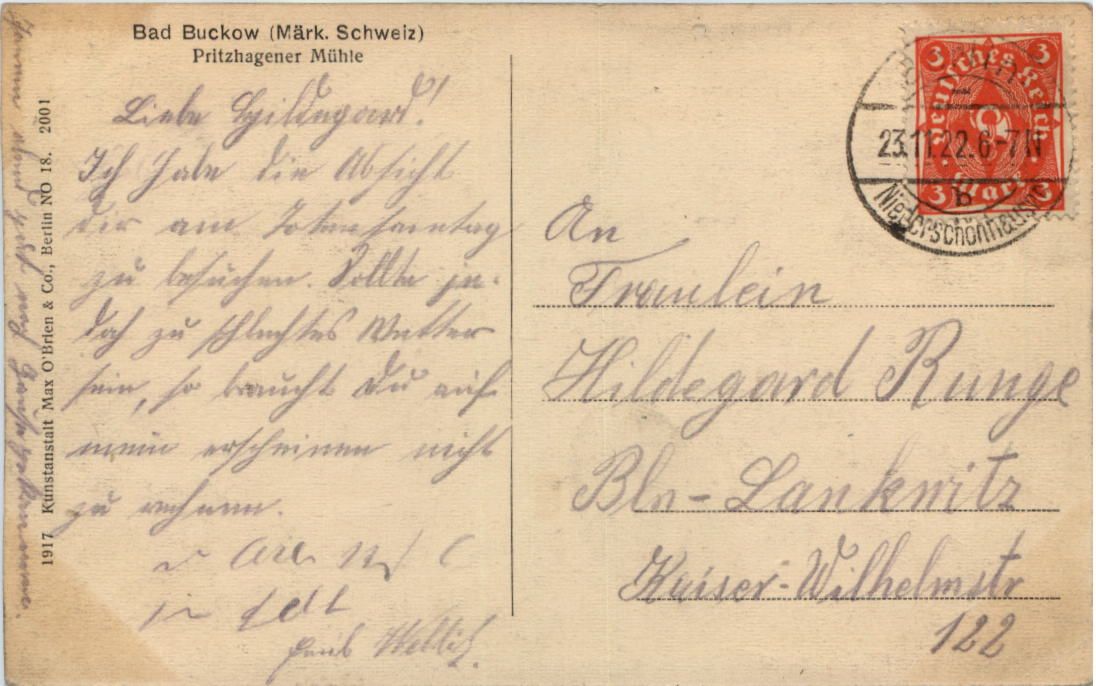 Bad Buckow (Märk. Schweiz)
Pritzhagener Mühle
Liebe Hildegard!
Ich habe die Absicht
dir am Totensonntag
zu besuchen. Sollte je-
doch zu schlechtes Wetter
sein, so brauchst Du auf
mein erscheinen nicht
zu rechnen.
1917 Kunstanstalt Max O'Brien & Co., Berlin NO 18. 2001
An
Fraulein
Hildegard Runge
Bln-Lankwitz
Kaiser-Wilhelmstr
122
3 3
Deutsches Reich
3
Mark
3 3
23.11.22.6-7N
b
Niederschönhausen